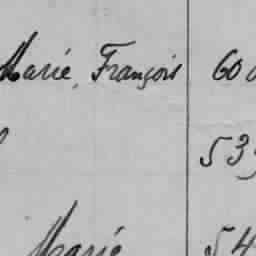 Marié, François 60
53
Marié 54